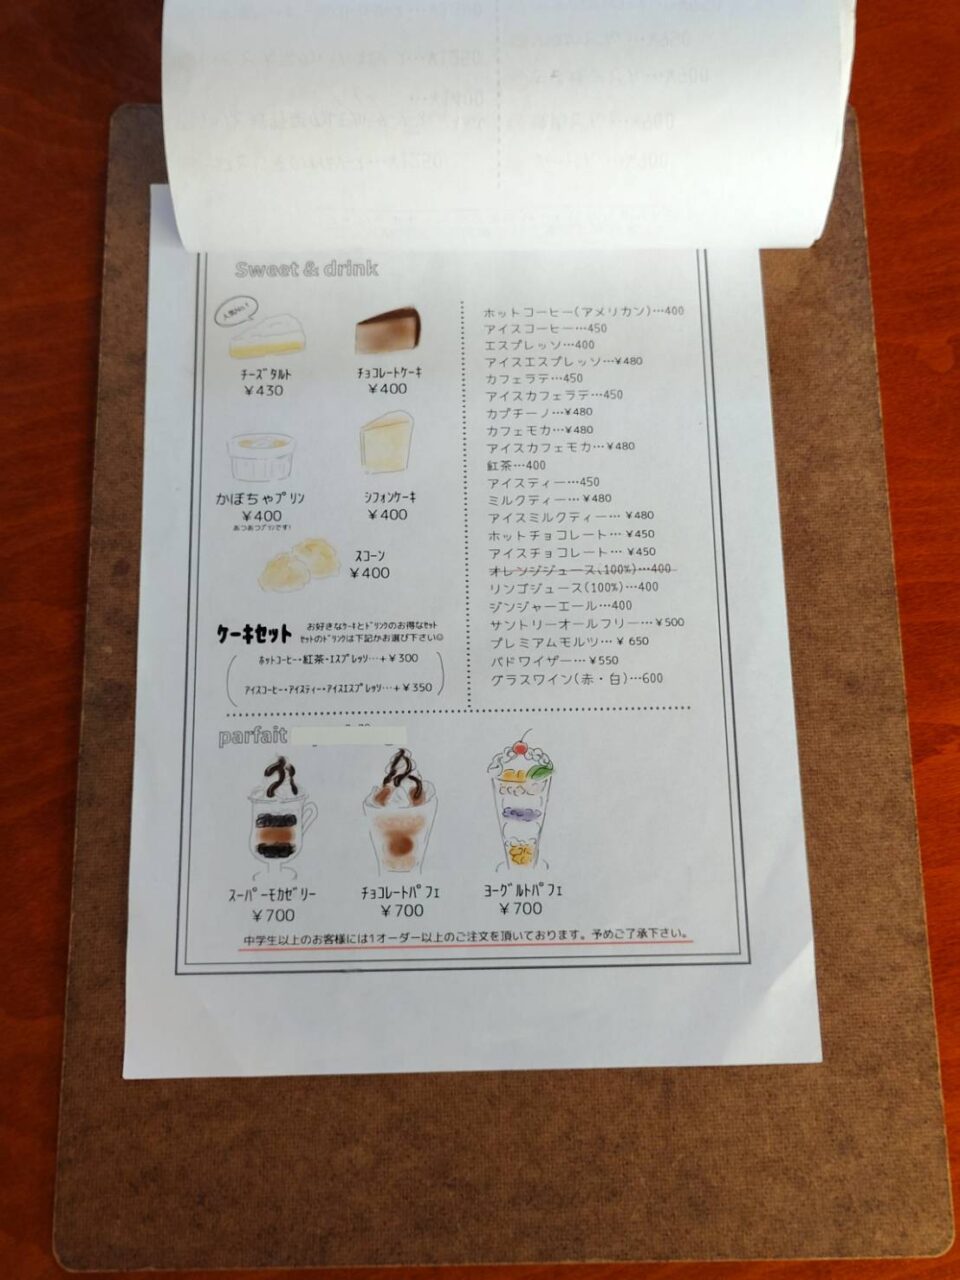 Sweet & drink
人気No.1
チーズタルト
￥430
チョコレートケーキ
￥400
かぼちゃプリン
￥400
あつあつプリンです!
シフォンケーキ
￥400
スコーン
￥400
ケーキセット
お好きなケーキとドリンクのお得なセット
セットのドリンクは下記かお選び下さい☺
ホットコーヒー・紅茶・エスプレッソ…+￥300
アイスコーヒー・アイスティー・アイスエスプレッソ…+￥350
ホットコーヒー(アメリカン)…400
アイスコーヒー…450
エスプレッソ…400
アイスエスプレッソ…￥480
カフェラテ…450
アイスカフェラテ…450
カプチーノ…￥480
カフェモカ…￥480
アイスカフェモカ…￥480
紅茶…400
アイスティー…450
ミルクティー…￥480
アイスミルクティー…￥480
ホットチョコレート…￥450
アイスチョコレート…￥450
オレンジジュース(100%)…400
リンゴジュース(100%)…400
ジンジャーエール…400
サントリーオールフリー…￥500
プレミアムモルツ…￥650
バドワイザー…￥550
グラスワイン(赤・白)…600
parfait
スーパーモカゼリー
￥700
チョコレートパフェ
￥700
ヨーグルトパフェ
￥700
中学生以上のお客様には1オーダー以上のご注文を頂いております。予めご了承下さい。